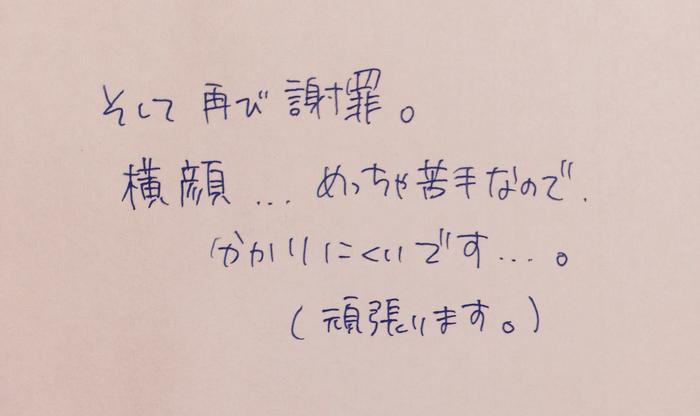 そして再び謝罪。
横顔...めっちゃ苦手なので.
わかりにくいです...。
(頑張ります。)